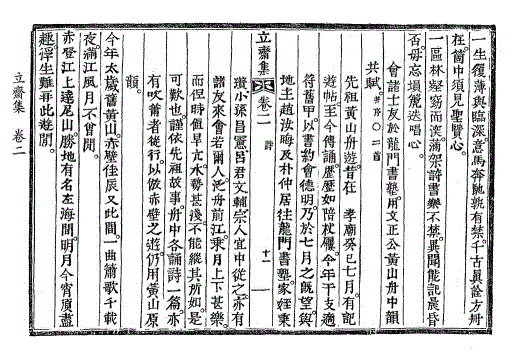 一生履薄與臨深意馬奔馳孰有禁千古眞詮方冊
在箇中須見聖賢心
一區林壑窈而深滿架詩書樂不禁異聞能記晨昏
否毋忘塤篪迭唱心
共賦 并序○二首
會諸士友於龍門書塾用文正公黃山舟中韻
先祖黃山舟遊昔在 孝廟癸巳七月有記
遊帖至今傳誦歷歷如陪杖屨今年干支適
符舊甲以書約會德明乃於七月之旣望與
地主趙汝晦及朴仲居往龍門書塾家姪秉
立齋集 卷二 詩 十一
瓚小孫昌憲呂君文輔宗人宜中從之亦有
諸友來會若爾人泛舟前江乘月上下甚樂
而但時値旱亢水勢甚淺不能縱其所如是
可歎也謹依先祖故事舟中各誦詩一篇亦
有吹簫者從行以倣赤壁之遊仍用黃山原
韻
今年太歲舊黃山赤壁佳辰又此間一曲簫歌千載
夜滿江風月不曾閒
赤登江上遠尼山勝地有名左海間明月今宵須盡
趣浮生難再此遊閒
立齋集 卷二